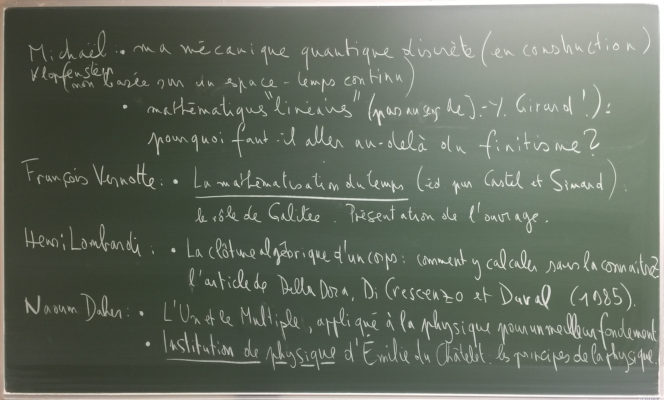 Michaël : • ma mécanique quantique discrète (en construction)
Klopfenstein non basée sur un space-temps continu)
• mathématiques "linéaires" (pas au sens de J.-Y. Girard !) :
pourquoi faut-il aller au-delà du finitisme ?
François Vernotte : • La mathématisation du temps (éd par Castel et Simard).
le rôle de Galilée. Présentation de l'ouvrage.
Henri Lombardi : • La clôture algébrique d'un corps : comment y calculer sans la connaître ?
l'article de Della Dora, Di Crescenzo et Duval (1985).
Naoum Daher : • L'Un et le Multiple, appliqué à la physique pour un meilleur fondement
• Institution de physique d'Émilie du Châtelet. les principes de la physique.